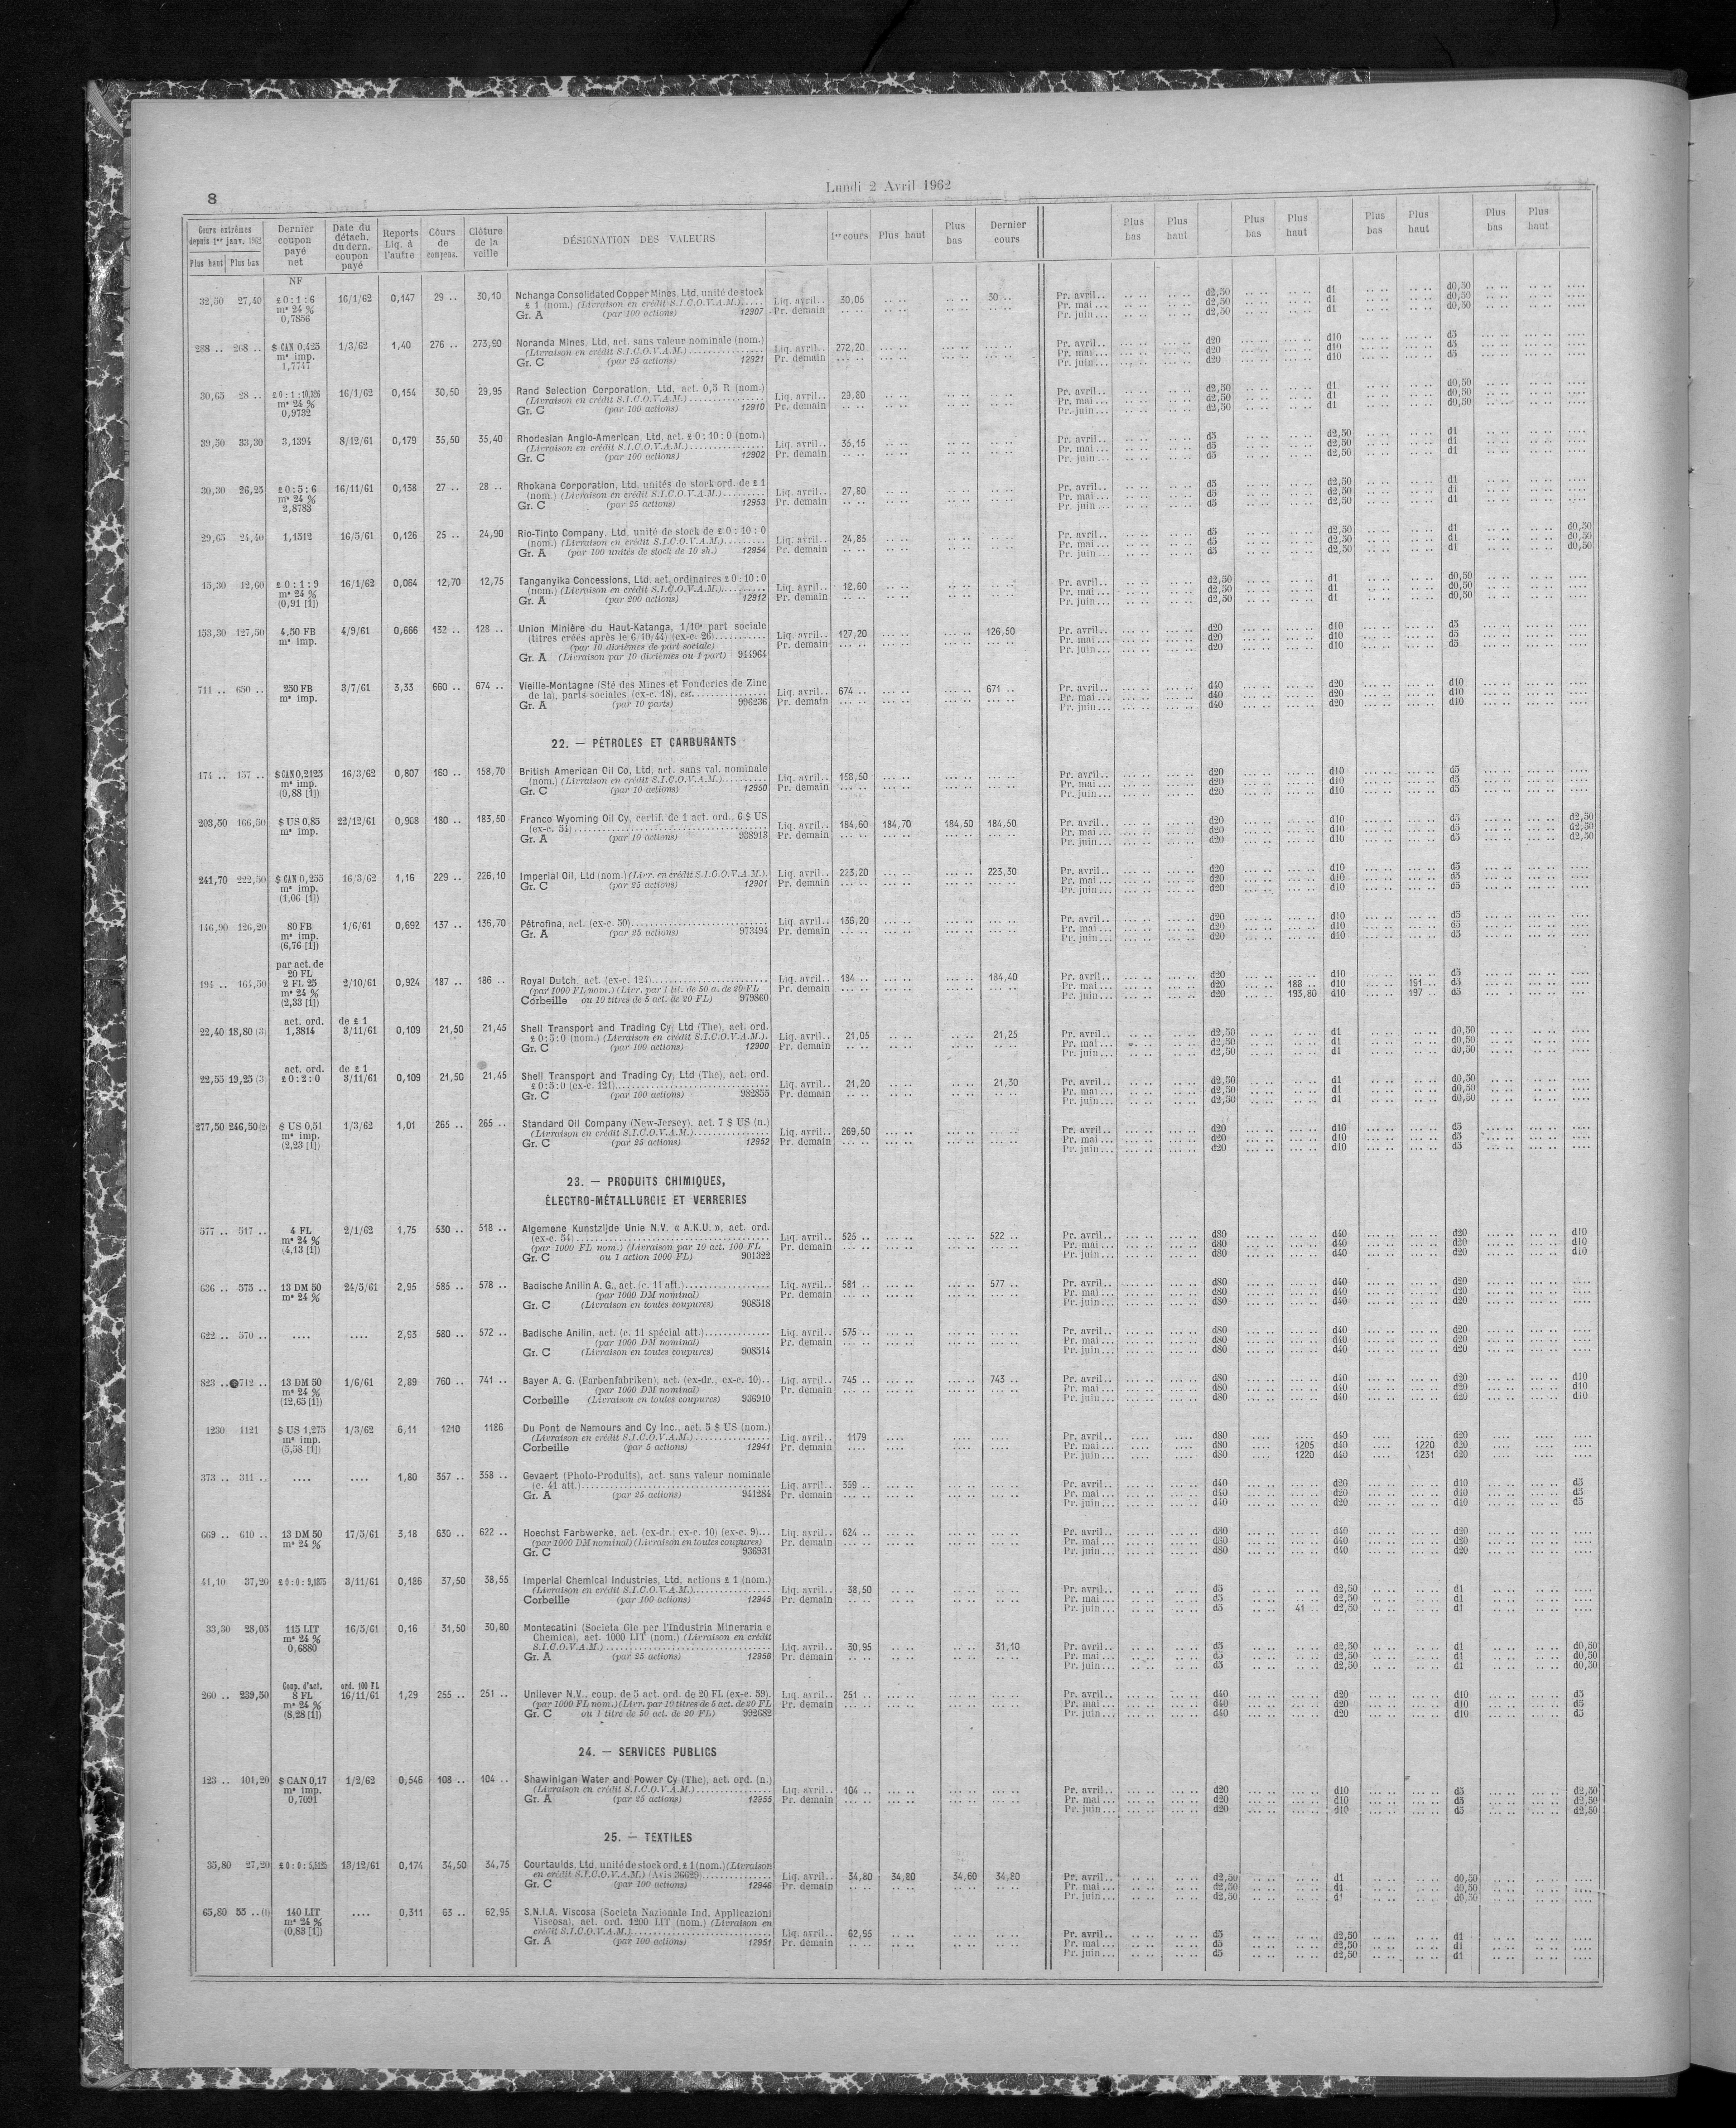 8
Lundi 2 Avril 1962
Cours extrêmes depuis 1er janv. 1962 Plus haut Plus bas | Dernier coupon payé net | Date du détach. du dern. coupon payé | Reports Liq. à l'autre | Cours de compens. | Clôture de la veille | DÉSIGNATION DES VALEURS | 1er cours | Plus haut | Plus bas | Dernier cours | Plus bas | Plus haut | Plus bas | Plus haut | Plus bas | Plus haut | Plus bas | Plus haut
NF
32,50 27,40 £ 0 : 1 : 6 16/1/62 0,147 29 .. 30,10 Nchanga Consolidated Copper Mines, Ltd, unité de stock
£ 1 (nom.) (Livraison en crédit S.I.C.O.V.A.M.)..... Liq. avril.. 30,05 30 .. Pr. avril.. d2,50 d1 d0,50
m* 24 % 0,7856 Gr. A (par 100 actions) 12907 Pr. demain Pr. mai ... d2,50 d1 d0,50
Pr. juin ... d2,50 d1 d0,50
288 .. 268 .. $ CAN 0,425 1/3/62 1,40 276 .. 273,90 Noranda Mines, Ltd, act. sans valeur nominale (nom.)
m* imp. (Livraison en crédit S.I.C.O.V.A.M.) Liq. avril.. 272,20 Pr. avril.. d20 d10 d5
Gr. C (par 25 actions) 12921 Pr. demain Pr. mai ... d20 d10 d5
Pr. juin ... d20 d10 d5
30,65 28 .. £ 0 : 1 : 10,326 16/1/62 0,154 30,50 29,95 Rand Selection Corporation, Ltd, act. 0,5 R (nom.)
m* 24 % (Livraison en crédit S.I.C.O.V.A.M.) Liq. avril.. 29,80 Pr. avril.. d2,50 d1 d0,50
0,9732 Gr. C (par 100 actions) 12910 Pr. demain Pr. mai ... d2,50 d1 d0,50
Pr. juin ... d2,50 d1 d0,50
39,50 33,30 3,1394 8/12/61 0,179 35,50 35,40 Rhodesian Anglo-American, Ltd, act. £ 0 : 10 : 0 (nom.)
(Livraison en crédit S.I.C.O.V.A.M.) Liq. avril.. 35,15 Pr. avril.. d5 d2,50 d1
Gr. C (par 100 actions) 12902 Pr. demain Pr. mai ... d5 d2,50 d1
Pr. juin ... d5 d2,50 d1
30,30 26,25 £ 0 : 5 : 6 16/11/61 0,138 27 .. 28 .. Rhokana Corporation, Ltd, unités de stock ord. de £ 1
m* 24 % (nom.) (Livraison en crédit S.I.C.O.V.A.M.) Liq. avril.. 27,80 Pr. avril.. d5 d2,50 d1
2,8783 Gr. C (par 25 actions) 12953 Pr. demain Pr. mai ... d5 d2,50 d1
Pr. juin ... d5 d2,50 d1
29,65 24,40 1,1512 16/5/61 0,126 25 .. 24,90 Rio-Tinto Company, Ltd, unité de stock de £ 0 : 10 : 0
(nom.) (Livraison en crédit S.I.C.O.V.A.M.) Liq. avril.. 24,85 Pr. avril.. d5 d2,50 d1 d0,50
Gr. A (par 100 unités de stock de 10 sh.) 12954 Pr. demain Pr. mai ... d5 d2,50 d1 d0,50
Pr. juin ... d5 d2,50 d1 d0,50
15,30 12,60 £ 0 : 1 : 9 16/1/62 0,064 12,70 12,75 Tanganyika Concessions, Ltd, act. ordinaires £ 0 : 10 : 0
m* 24 % (nom.) (Livraison en crédit S.I.C.O.V.A.M.) Liq. avril.. 12,60 Pr. avril.. d2,50 d1 d0,50
(0,91 [1]) Gr. A (par 200 actions) 12912 Pr. demain Pr. mai ... d2,50 d1 d0,50
Pr. juin ... d2,50 d1 d0,50
153,30 127,50 4,50 FB 4/9/61 0,666 132 .. 128 .. Union Minière du Haut-Katanga, 1/10e part sociale
m* imp. (titres créés après le 6/10/44) (ex-c. 26) Liq. avril.. 127,20 126,50 Pr. avril.. d20 d10 d5
(par 10 dixièmes de part sociale) Pr. demain Pr. mai ... d20 d10 d5
Gr. A (Livraison par 10 dixièmes ou 1 part) 944964 Pr. juin ... d20 d10 d5
711 .. 650 .. 250 FB 3/7/61 3,33 660 .. 674 .. Vieille-Montagne (Sté des Mines et Fonderies de Zinc
m* imp. de la), parts sociales (ex-c. 18), est. Liq. avril.. 674 .. 671 .. Pr. avril.. d40 d20 d10
Gr. A (par 10 parts) 996236 Pr. demain Pr. mai ... d40 d20 d10
Pr. juin ... d40 d20 d10
22. — PÉTROLES ET CARBURANTS
174 .. 157 .. $ CAN 0,2125 16/3/62 0,807 160 .. 158,70 British American Oil Co, Ltd, act. sans val. nominale
m* imp. (nom.) (Livraison en crédit S.I.C.O.V.A.M.) Liq. avril.. 158,50 Pr. avril.. d20 d10 d5
(0,88 [1]) Gr. C (par 10 actions) 12950 Pr. demain Pr. mai ... d20 d10 d5
Pr. juin ... d20 d10 d5
203,50 166,50 $ US 0,85 22/12/61 0,908 180 .. 183,50 Franco Wyoming Oil Cy, certif. de 1 act. ord., 6 $ US
m* imp. (ex-c. 54) Liq. avril.. 184,60 184,70 184,50 184,50 Pr. avril.. d20 d10 d5 d2,50
Gr. A (par 10 actions) 938913 Pr. demain Pr. mai ... d20 d10 d5 d2,50
Pr. juin ... d20 d10 d5 d2,50
241,70 222,50 $ CAN 0,255 16/3/62 1,16 229 .. 226,10 Imperial Oil, Ltd (nom.) (Livr. en crédit S.I.C.O.V.A.M.). Liq. avril.. 223,20 223,30 Pr. avril.. d20 d10 d5
m* imp. (1,06 [1]) Gr. C (par 25 actions) 12901 Pr. demain Pr. mai ... d20 d10 d5
Pr. juin ... d20 d10 d5
146,90 126,20 80 FB 1/6/61 0,692 137 .. 136,70 Pétrofina, act. (ex-c. 50) Liq. avril.. 136,20 Pr. avril.. d20 d10 d5
m* imp. (6,76 [1]) Gr. A (par 25 actions) 973494 Pr. demain Pr. mai ... d20 d10 d5
Pr. juin ... d20 d10 d5
par act. de 20 FL
194 .. 164,50 2 FL 25 2/10/61 0,924 187 .. 186 .. Royal Dutch, act. (ex-c. 124) Liq. avril.. 184 .. 184,40 Pr. avril.. d20 d10 d5
m* 24 % (par 1000 FL nom.) (Livr. par 1 tit. de 50 a. de 20 FL Pr. demain Pr. mai ... d20 188 .. d10 191 .. d5
(2,33 [1]) Corbeille ou 10 titres de 5 act. de 20 FL) 979860 Pr. juin ... d20 193,80 d10 197 .. d5
act. ord. de £ 1
22,40 18,80 (3) 1,3814 3/11/61 0,109 21,50 21,45 Shell Transport and Trading Cy, Ltd (The), act. ord.
£ 0 : 5 : 0 (nom.) (Livraison en crédit S.I.C.O.V.A.M.). Liq. avril.. 21,05 21,25 Pr. avril.. d2,50 d1 d0,50
Gr. C (par 100 actions) 12900 Pr. demain Pr. mai ... d2,50 d1 d0,50
Pr. juin ... d2,50 d1 d0,50
act. ord. de £ 1
22,55 19,25 (3) £ 0 : 2 : 0 3/11/61 0,109 21,50 21,45 Shell Transport and Trading Cy, Ltd (The), act. ord.
£ 0 : 5 : 0 (ex-c. 121) Liq. avril.. 21,20 21,30 Pr. avril.. d2,50 d1 d0,50
Gr. C (par 100 actions) 982855 Pr. demain Pr. mai ... d2,50 d1 d0,50
Pr. juin ... d2,50 d1 d0,50
277,50 246,50 (2) $ US 0,51 1/3/62 1,01 265 .. 265 .. Standard Oil Company (New-Jersey), act. 7 $ US (n.)
m* imp. (Livraison en crédit S.I.C.O.V.A.M.) Liq. avril.. 269,50 Pr. avril.. d20 d10 d5
(2,23 [1]) Gr. C (par 25 actions) 12952 Pr. demain Pr. mai ... d20 d10 d5
Pr. juin ... d20 d10 d5
23. — PRODUITS CHIMIQUES,
ÉLECTRO-MÉTALLURGIE ET VERRERIES
577 .. 517 .. 4 FL 2/1/62 1,75 530 .. 518 .. Algemene Kunstzijde Unie N.V. « A.K.U. », act. ord.
m* 24 % (ex-c. 54) Liq. avril.. 525 .. 522 .. Pr. avril.. d80 d40 d20 d10
(4,13 [1]) (par 1000 FL nom.) (Livraison par 10 act. 100 FL Pr. demain Pr. mai ... d80 d40 d20 d10
Gr. C ou 1 action 1000 FL) 901322 Pr. juin ... d80 d40 d20 d10
636 .. 575 .. 13 DM 50 24/5/61 2,95 585 .. 578 .. Badische Anilin A. G., act. (c. 11 att.) Liq. avril.. 581 .. 577 .. Pr. avril.. d80 d40 d20
m* 24 % (par 1000 DM nominal) Pr. demain Pr. mai ... d80 d40 d20
Gr. C (Livraison en toutes coupures) 908518 Pr. juin ... d80 d40 d20
622 .. 570 .. .... .... 2,93 580 .. 572 .. Badische Anilin, act. (c. 11 spécial att.) Liq. avril.. 575 .. Pr. avril.. d80 d40 d20
(par 1000 DM nominal) Pr. demain Pr. mai ... d80 d40 d20
Gr. C (Livraison en toutes coupures) 908514 Pr. juin ... d80 d40 d20
823 .. 712 .. 13 DM 50 1/6/61 2,89 760 .. 741 .. Bayer A. G. (Farbenfabriken), act. (ex-dr., ex-c. 10).. Liq. avril.. 745 .. 743 .. Pr. avril.. d80 d40 d20 d10
m* 24 % (par 1000 DM nominal) Pr. demain Pr. mai ... d80 d40 d20 d10
(12,65 [1]) Corbeille (Livraison en toutes coupures) 936910 Pr. juin ... d80 d40 d20 d10
1230 1121 $ US 1,275 1/3/62 6,11 1210 1186 Du Pont de Nemours and Cy Inc., act. 5 $ US (nom.)
m* imp. (Livraison en crédit S.I.C.O.V.A.M.) Liq. avril.. 1179 Pr. avril.. d80 d40 d20
(5,58 [1]) Corbeille (par 5 actions) 12941 Pr. demain Pr. mai ... d80 1205 d40 1220 d20
Pr. juin ... d80 1220 d40 1231 d20
373 .. 311 .. .... .... 1,80 357 .. 358 .. Gevaert (Photo-Produits), act. sans valeur nominale
(c. 41 att.) Liq. avril.. 359 .. Pr. avril.. d40 d20 d10 d5
Gr. A (par 25 actions) 941284 Pr. demain Pr. mai ... d40 d20 d10 d5
Pr. juin ... d40 d20 d10 d5
669 .. 610 .. 13 DM 50 17/5/61 3,18 630 .. 622 .. Hoechst Farbwerke, act. (ex-dr., ex-c. 10) (ex-c. 9)... Liq. avril.. 624 .. Pr. avril.. d80 d40 d20
m* 24 % (par 1000 DM nominal) (Livraison en toutes coupures) Pr. demain Pr. mai ... d80 d40 d20
Gr. C 936931 Pr. juin ... d80 d40 d20
41,10 37,20 £ 0 : 0 : 9,1875 3/11/61 0,186 37,50 38,55 Imperial Chemical Industries, Ltd, actions £ 1 (nom.)
(Livraison en crédit S.I.C.O.V.A.M.) Liq. avril.. 38,50 Pr. avril.. d5 d2,50 d1
Corbeille (par 100 actions) 12945 Pr. demain Pr. mai ... d5 d2,50 d1
Pr. juin ... d5 41 .. d2,50 d1
33,30 28,05 115 LIT 16/5/61 0,16 31,50 30,80 Montecatini (Societa Gle per l'Industria Mineraria e
m* 24 % Chemica), act. 1000 LIT (nom.) (Livraison en crédit
0,6880 S.I.C.O.V.A.M.) Liq. avril.. 30,95 31,10 Pr. avril.. d5 d2,50 d1 d0,50
Gr. A (par 25 actions) 12956 Pr. demain Pr. mai ... d5 d2,50 d1 d0,50
Pr. juin ... d5 d2,50 d1 d0,50
Coup. d'act. ord. 100 FL
260 .. 239,50 8 FL 16/11/61 1,29 255 .. 251 .. Unilever N.V., coup. de 5 act. ord. de 20 FL (ex-c. 59). Liq. avril.. 251 .. Pr. avril.. d40 d20 d10 d5
m* 24 % (par 1000 FL nom.) (Livr. par 10 titres de 5 act. de 20 FL Pr. demain Pr. mai ... d40 d20 d10 d5
(8,28 [1]) Gr. C ou 1 titre de 50 act. de 20 FL) 992682 Pr. juin ... d40 d20 d10 d5
24. — SERVICES PUBLICS
123 .. 101,20 $ CAN 0,17 1/2/62 0,546 108 .. 104 .. Shawinigan Water and Power Cy (The), act. ord. (n.)
m* imp. (Livraison en crédit S.I.C.O.V.A.M.) Liq. avril.. 104 .. Pr. avril.. d20 d10 d5 d2,50
0,7091 Gr. A (par 25 actions) 12955 Pr. demain Pr. mai ... d20 d10 d5 d2,50
Pr. juin ... d20 d10 d5 d2,50
25. — TEXTILES
35,80 27,20 £ 0 : 0 : 5,5125 13/12/61 0,174 34,50 34,75 Courtaulds, Ltd, unité de stock ord. £ 1 (nom.) (Livraison
en crédit S.I.C.O.V.A.M.) Liq. avril.. 34,80 34,80 34,60 34,80 Pr. avril.. d2,50 d1 d0,50
Gr. C (par 100 actions) 12946 Pr. demain Pr. mai ... d2,50 d1 d0,50
Pr. juin ... d2,50 d1 d0,50
65,80 55 .. (1) 140 LIT .... 0,311 63 .. 62,95 S.N.I.A. Viscosa (Societa Nazionale Ind. Applicazioni
m* 24 % Viscosa), act. ord. 1200 LIT (nom.) (Livraison en
(0,83 [1]) crédit S.I.C.O.V.A.M.) Liq. avril.. 62,95 Pr. avril.. d5 d2,50 d1
Gr. A (par 100 actions) 12951 Pr. demain Pr. mai ... d5 d2,50 d1
Pr. juin ... d5 d2,50 d1